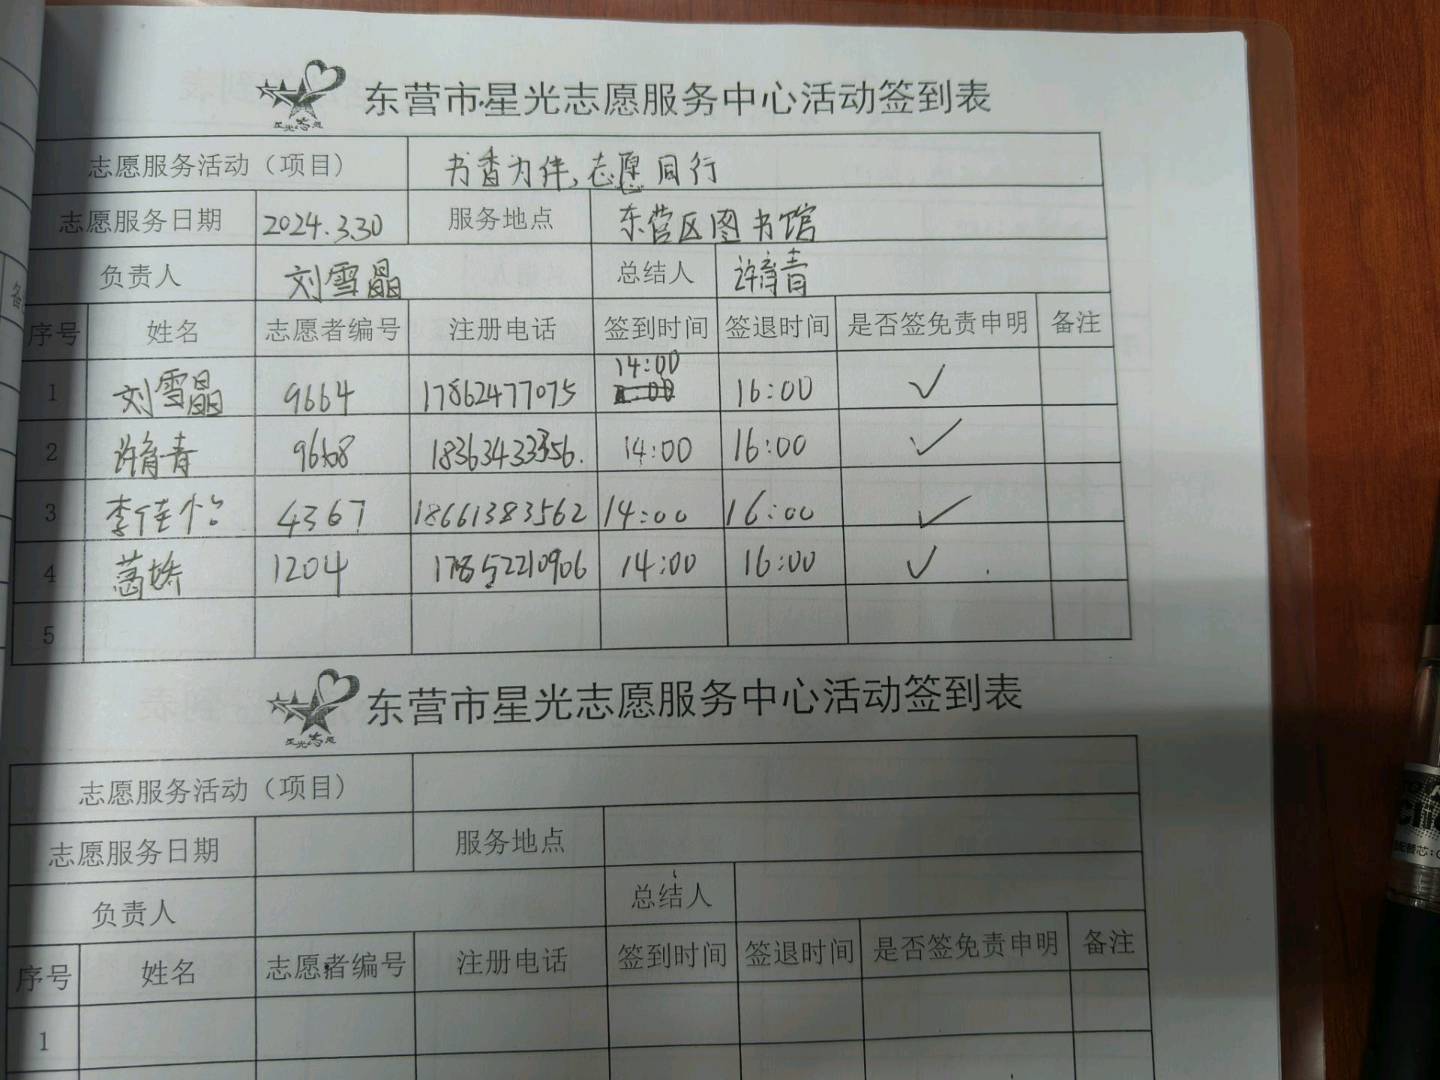 东营市星光志愿服务中心活动签到表
星光志愿
志愿服务活动（项目） 书香为伴，志愿同行
志愿服务日期 2024.3.30 服务地点 东营区图书馆
负责人 刘雪晶 总结人 许育青
序号 姓名 志愿者编号 注册电话 签到时间 签退时间 是否签免责申明 备注
14:00
1 刘雪晶 9664 17862477075 16:00 ✓
2 许育青 9668 18363433356. 14:00 16:00 ✓
3 李佳怡 4367 18661383562 14:00 16:00 ✓
4 葛娇 1204 17852210906 14:00 16:00 ✓
5
东营市星光志愿服务中心活动签到表
星光志愿
志愿服务活动（项目）
志愿服务日期 服务地点
负责人 总结人
序号 姓名 志愿者编号 注册电话 签到时间 签退时间 是否签免责申明 备注
1